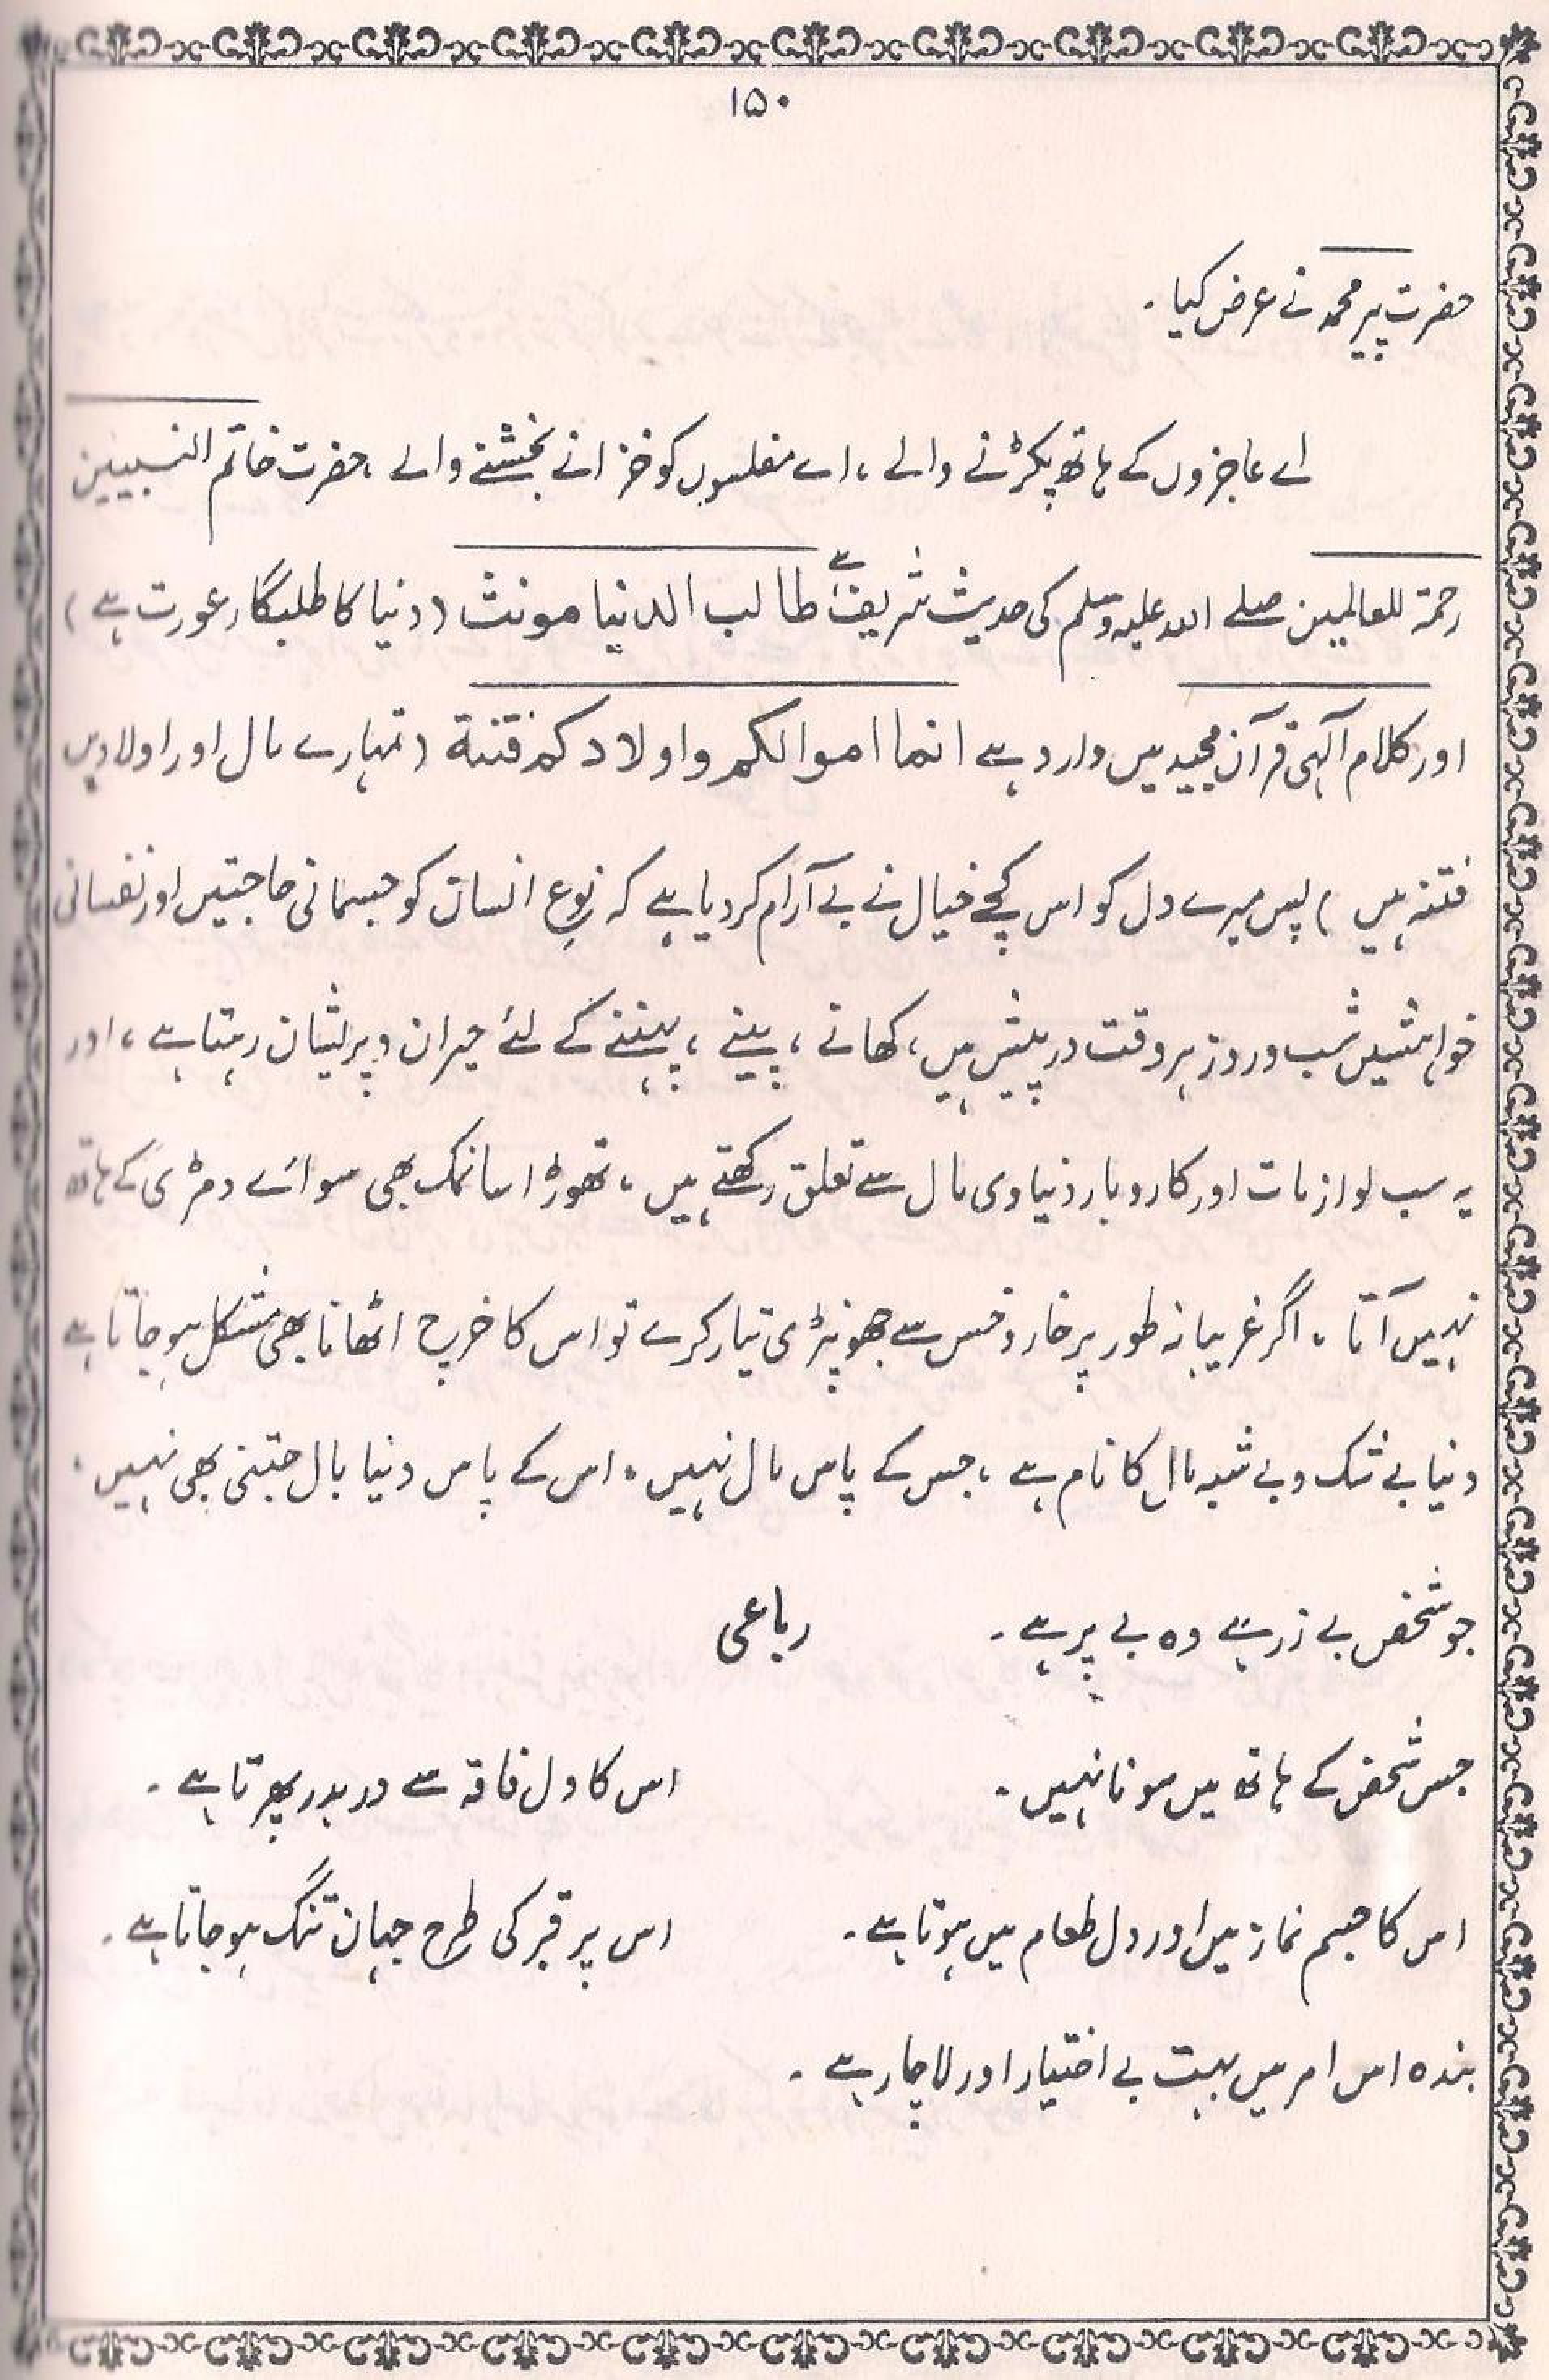 ۱۵۰
حضرت پیر محمد نے عرض کیا ۔
اے عاجزوں کے ہاتھ پکڑنے والے ، اے مفلسوں کو خزانے بخشنے والے ، حضرت خاتم النبیین
رحمۃ للعالمین صلے اللہ علیہ وسلم کی حدیث شریف ہے طالب الدنیا مونث ( دنیا کا طلبگار عورت ہے )
اور کلام آلہی قرآن مجید میں وارد ہے انما اموالکم واولادکم فتنۃ ( تمہارے مال اور اولادیں
فتنہ ہیں ) پس میرے دل کو اس کچے خیال نے بے آرام کردیا ہے کہ نوع انسان کو جسمانی حاجتیں اور نفسانی
خواہشیں شب و روز ہر وقت درپیش ہیں ، کھانے ، پینے ، پہننے کے لئے حیران و پریشان رہتا ہے ، اور
یہ سب لوازمات اور کاروبار دنیاوی مال سے تعلق رکھتے ہیں ، تھوڑا سا نمک بھی سوائے دمڑی کے ہاتھ
نہیں آتا ، اگر غریبانہ طور پر خار و خس سے جھونپڑی تیار کرے تو اس کا خرچ اٹھانا بھی مشکل ہو جاتا ہے
دنیا بے شک و بے شبہ مال کا نام ہے ، جس کے پاس مال نہیں ، اس کے پاس دنیا بال جتنی بھی نہیں ،
جو شخص بے زر ہے وہ بے پر ہے ۔ رباعی
جس شخص کے ہاتھ میں سونا نہیں ۔ اس کا دل فاقہ سے در بدر پھرتا ہے ۔
اس کا جسم نماز میں اور دل طعام میں ہوتا ہے ۔ اس پر قبر کی طرح جہان تنگ ہو جاتا ہے ۔
بندہ اس امر میں بہت بے اختیار اور لاچار ہے ۔